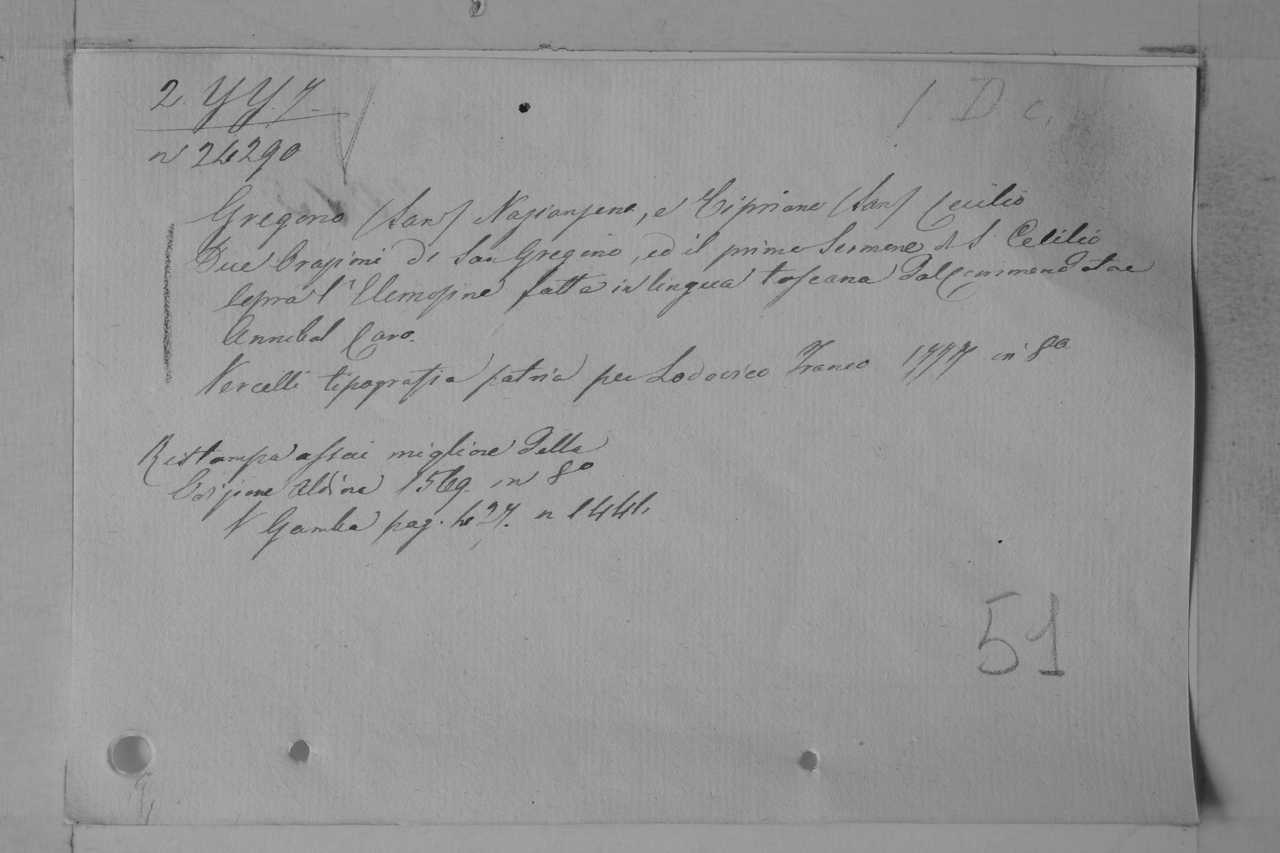 2. YY. 7.
1. D c.
n 24290
Gregorio (San) Nazianzeno, e Cipriano (San) Cecilio
Due Orazioni di San Gregorio, ed il primo Sermone di S. Cecilio
sopra l'Elemosina fatta in lingua toscana dal Commendatore
Annibal Caro.
Vercelli tipografia patria per Lodovico Franco 1777 in 8º
Ristampa assai migliore della
Edizione Aldina 1569 in 8º
V Gamba pag. 427. n 1441.
51